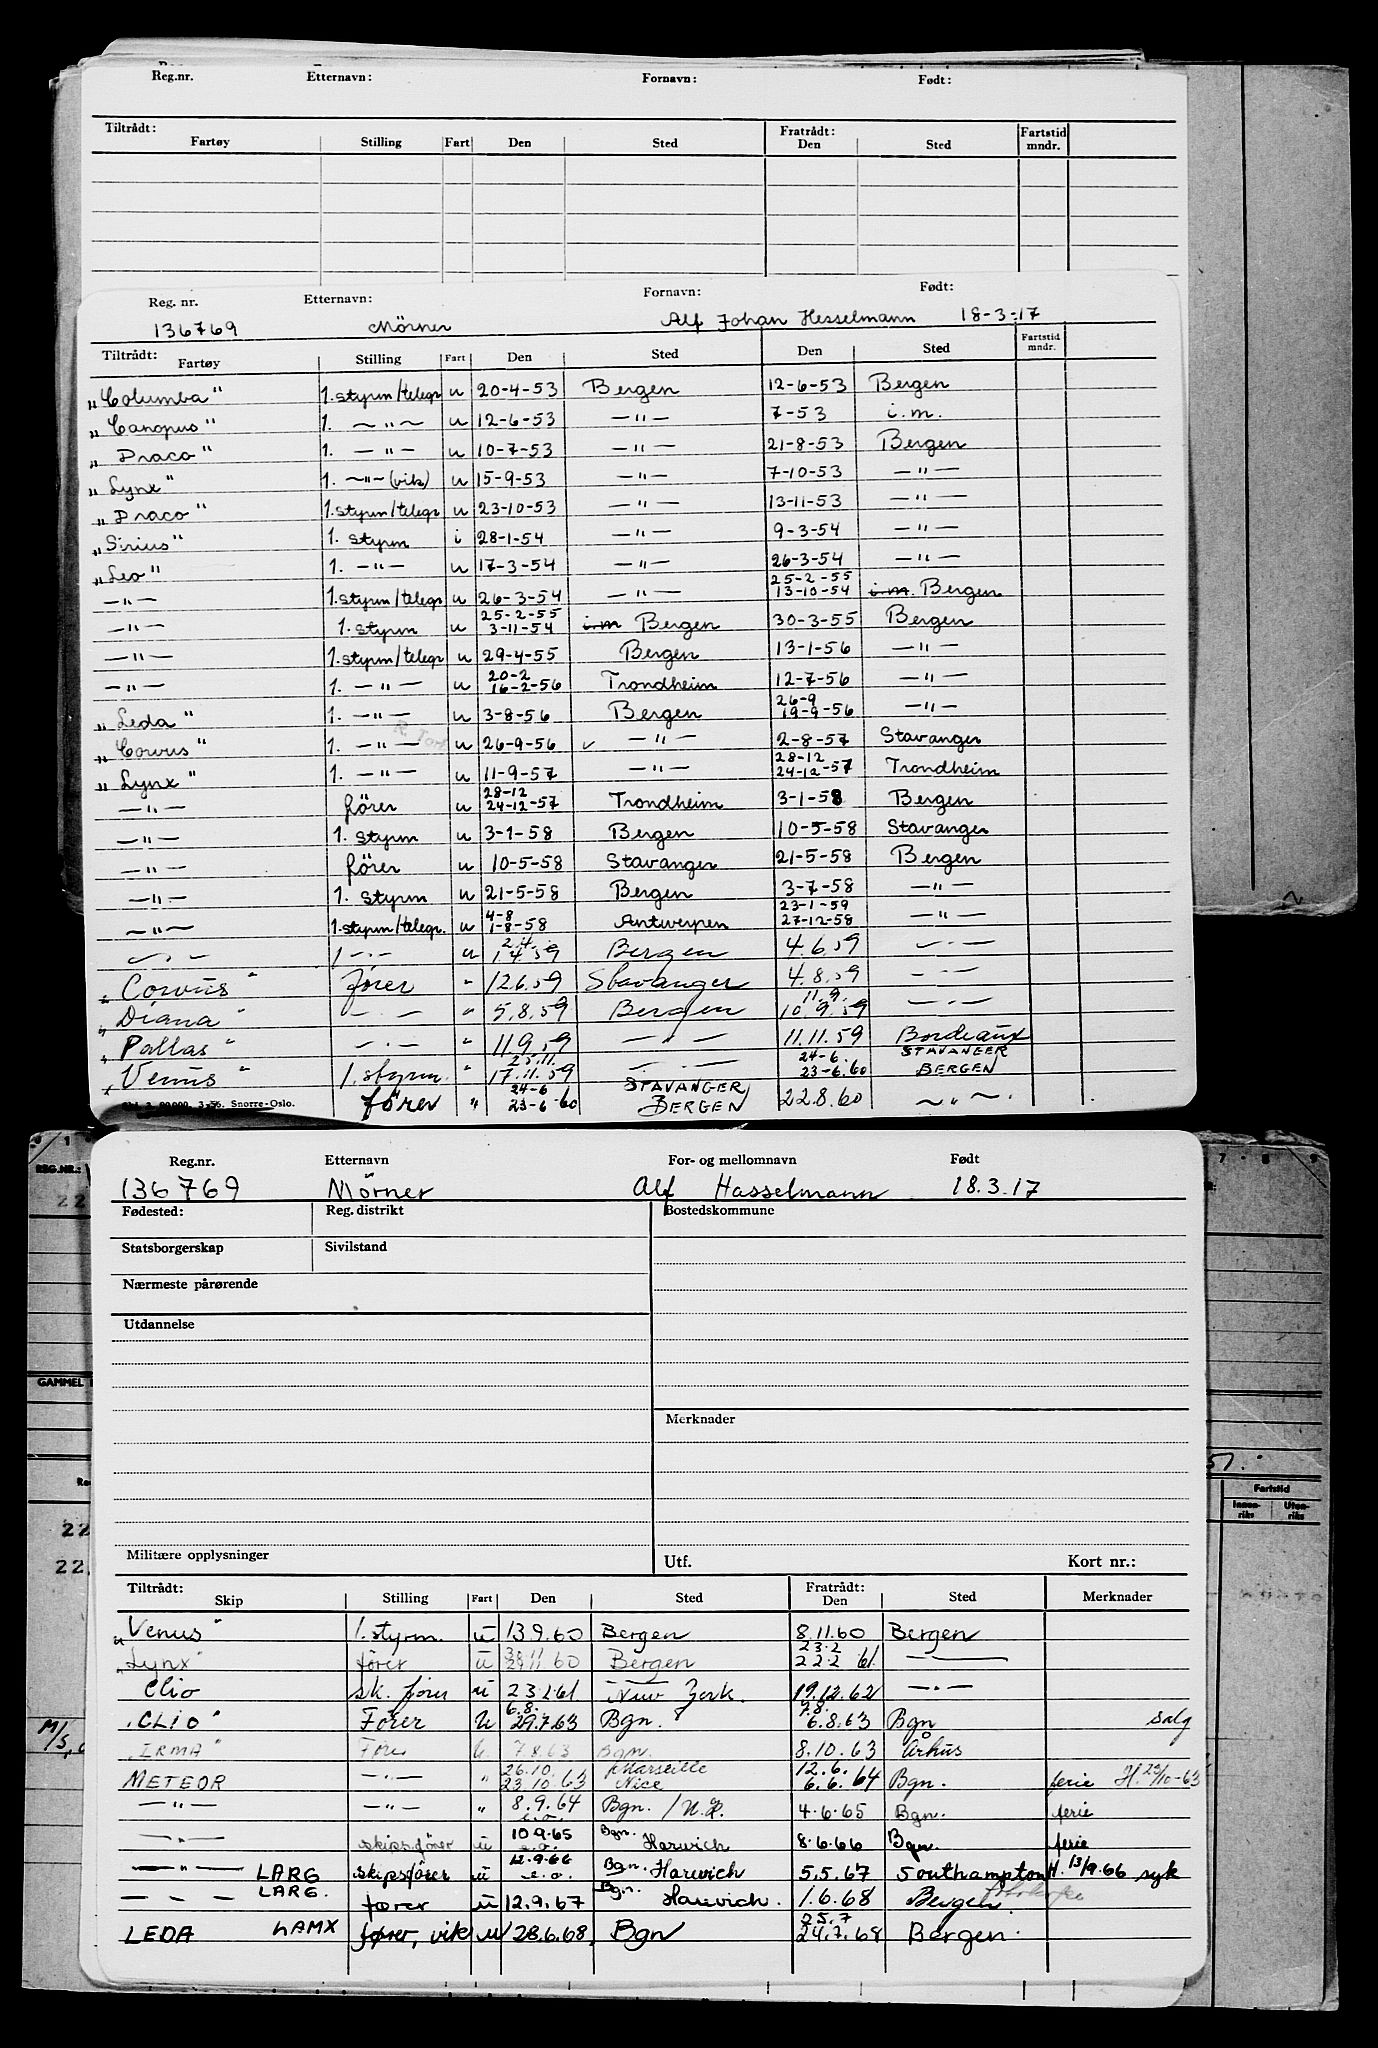 Reg.nr. Etternavn: Fornavn: Født:
Tiltrådt: Fratrådt: Fartstid
Fartøy Stilling Fart Den Sted Den Sted mndr.
Reg. nr. Etternavn: Fornavn: Født:
136769 Mörner Alf Johan Hesselmann 18-3-17
Tiltrådt: Fartstid
Fartøy Stilling Fart Den Sted Den Sted mndr.
"Columba" 1.styrm/telegr u 20-4-53 Bergen 12-6-53 Bergen
"Canopus" 1. —"— u 12-6-53 —"— 7-53 i.m.
"Draco" 1. —"— u 10-7-53 —"— 21-8-53 Bergen
"Lynx" 1. —"— (vik) u 15-9-53 —"— 7-10-53 —"—
"Draco" 1.styrm/telegr u 23-10-53 —"— 13-11-53 —"—
"Sirius" 1. styrm i 28-1-54 —"— 9-3-54 —"—
"Leo" 1. —"— u 17-3-54 —"— 26-3-54 —"—
25-2-55
—"— 1.styrm/telegr u 26-3-54 —"— 13-10-54 i.m. Bergen
25-2-55
—"— 1. styrm u 3-11-54 i.m Bergen 30-3-55 Bergen
—"— 1.styrm/telegr u 29-4-55 Bergen 13-1-56 —"—
20-2
—"— 1. —"— u 16-2-56 Trondheim 12-7-56 —"—
26-9
"Leda" 1. —"— u 3-8-56 Bergen 19-9-56 —"—
"Corvus" 1. —"— u 26-9-56 —"— 2-8-57 Stavanger
28-12
"Lynx" 1. —"— u 11-9-57 —"— 24-12-57 Trondheim
28-12
—"— förer u 24-12-57 Trondheim 3-1-58 Bergen
—"— 1. styrm u 3-1-58 Bergen 10-5-58 Stavanger
—"— förer u 10-5-58 Stavanger 21-5-58 Bergen
—"— 1. styrm u 21-5-58 Bergen 3-7-58 —"—
4-8 23-1-59
—"— 1.styrm/telegr. u 1-8-58 Antwerpen 27-12-58 —"—
2.4.
—"— 1 —"— u 1.4.59 Bergen 4.6.59 —"—
"Corvus" förer " 12.6.59 Stavanger 4.8.59 —"—
11.9.
"Diana" —"— " 5.8.59 Bergen 10.9.59 —"—
"Pallas" —"— " 11.9.59 —"— 11.11.59 Bordeaux
25.11. 24-6. STAVANGER
"Venus" 1.styrm. " 17.11.59 —"— 23-6.60 BERGEN
24-6 STAVANGER
förer " 23-6-60 BERGEN 22.8.60 —"—
3-56. Snorre-Oslo.
Reg.nr. Etternavn For- og mellomnavn Født
136769 Mörner Alf Hasselmann 18.3.17
Fødested: Reg. distrikt Bostedskommune
Statsborgerskap Sivilstand
Nærmeste pårørende
Utdannelse
Merknader
Militære opplysninger Utf. Kort nr.:
Tiltrådt: Fratrådt:
Skip Stilling Fart Den Sted Den Sted Merknader
"Venus" 1.styrm. u 13.9.60 Bergen 8.11.60 Bergen
23.2
"Lynx" förer u 60 Bergen 22.2 61. —"—
Clio sk. förer u 23.2.61. New York. 19.12.62 —"—
6.8. 7.8.
"CLIO" Förer u 29.7.63 Bgn. 6.8.63 Bgn salg
"IRMA" Förer u 7.8.63 Bgn. 8.10.63 Århus
26.10. Marseille 12.6.
METEOR —"— " 23.10.63 Nice 6.6.64 Bgn. ferie H. 23/10-63
—"— —"— " 8.9.64 Bgn. 4.6.65 Bgn. ferie
10.9.65 Bgn.
—"— skipsförer u e.o. Harwich 8.6.66 Bgn. ferie
12.9.66
—"— LARG skipsförer u e.o. Bgn. Harwich 5.5.67 Southampton H. 13/9.66 syk
—"— LARG. förer u 12.9.67 Bgn. Harwich. 1.6.68 Bergen.
25.7
LEDA LAMX fører, vik u 28.6.68. Bgn 24.7.68 Bergen.
REG.NR.:
GAMMEL
Fartstid
Innen-riks Uten-riks
22
22.
M/S,